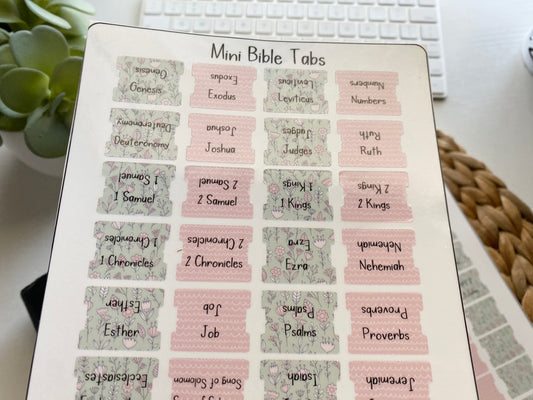 Mini Bible Tabs
Genesis Exodus Leviticus Numbers
Genesis Exodus Leviticus Numbers
Deuteronomy Joshua Judges Ruth
Deuteronomy Joshua Judges Ruth
1 Samuel 2 Samuel 1 Kings 2 Kings
1 Samuel 2 Samuel 1 Kings 2 Kings
1 Chronicles 2 Chronicles Ezra Nehemiah
1 Chronicles 2 Chronicles Ezra Nehemiah
Esther Job Psalms Proverbs
Esther Job Psalms Proverbs
Ecclesiastes Song of Solomon Isaiah Jeremiah